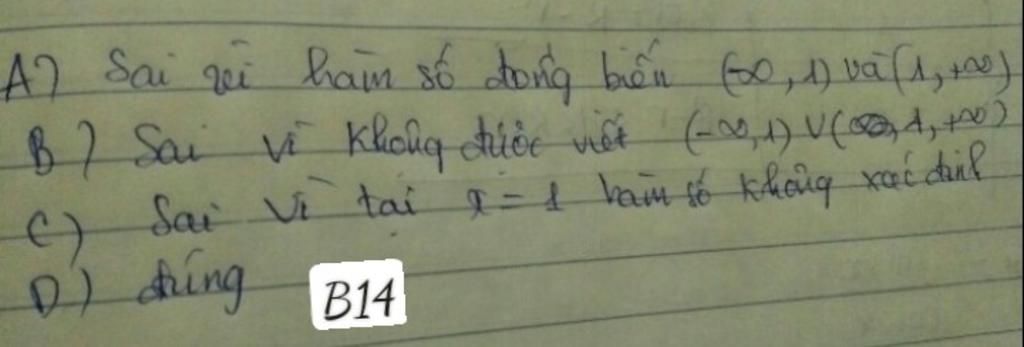 A) Sai vì hàm số đồng biến (-∞, 1) và (1, +∞)
B) Sai vì không được viết (-∞, 1) ∪ (1, +∞)
C) Sai vì tại x = 1 hàm số không xác định
D) đúng
B14